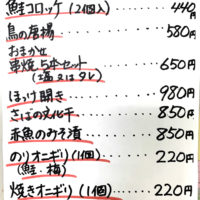 鮭コロッケ(2個入)・・・・440円
鳥の唐揚・・・・・・・580円
おまかせ
串焼5本セット・・・・650円
(塩又はタレ)
ほっけ開き・・・・・・980円
さばの文化干・・・・・850円
赤魚のみそ漬・・・・・850円
のりオニギリ(1個)・・・220円
(鮭・梅)
焼きオニギリ(1個)・・・220円